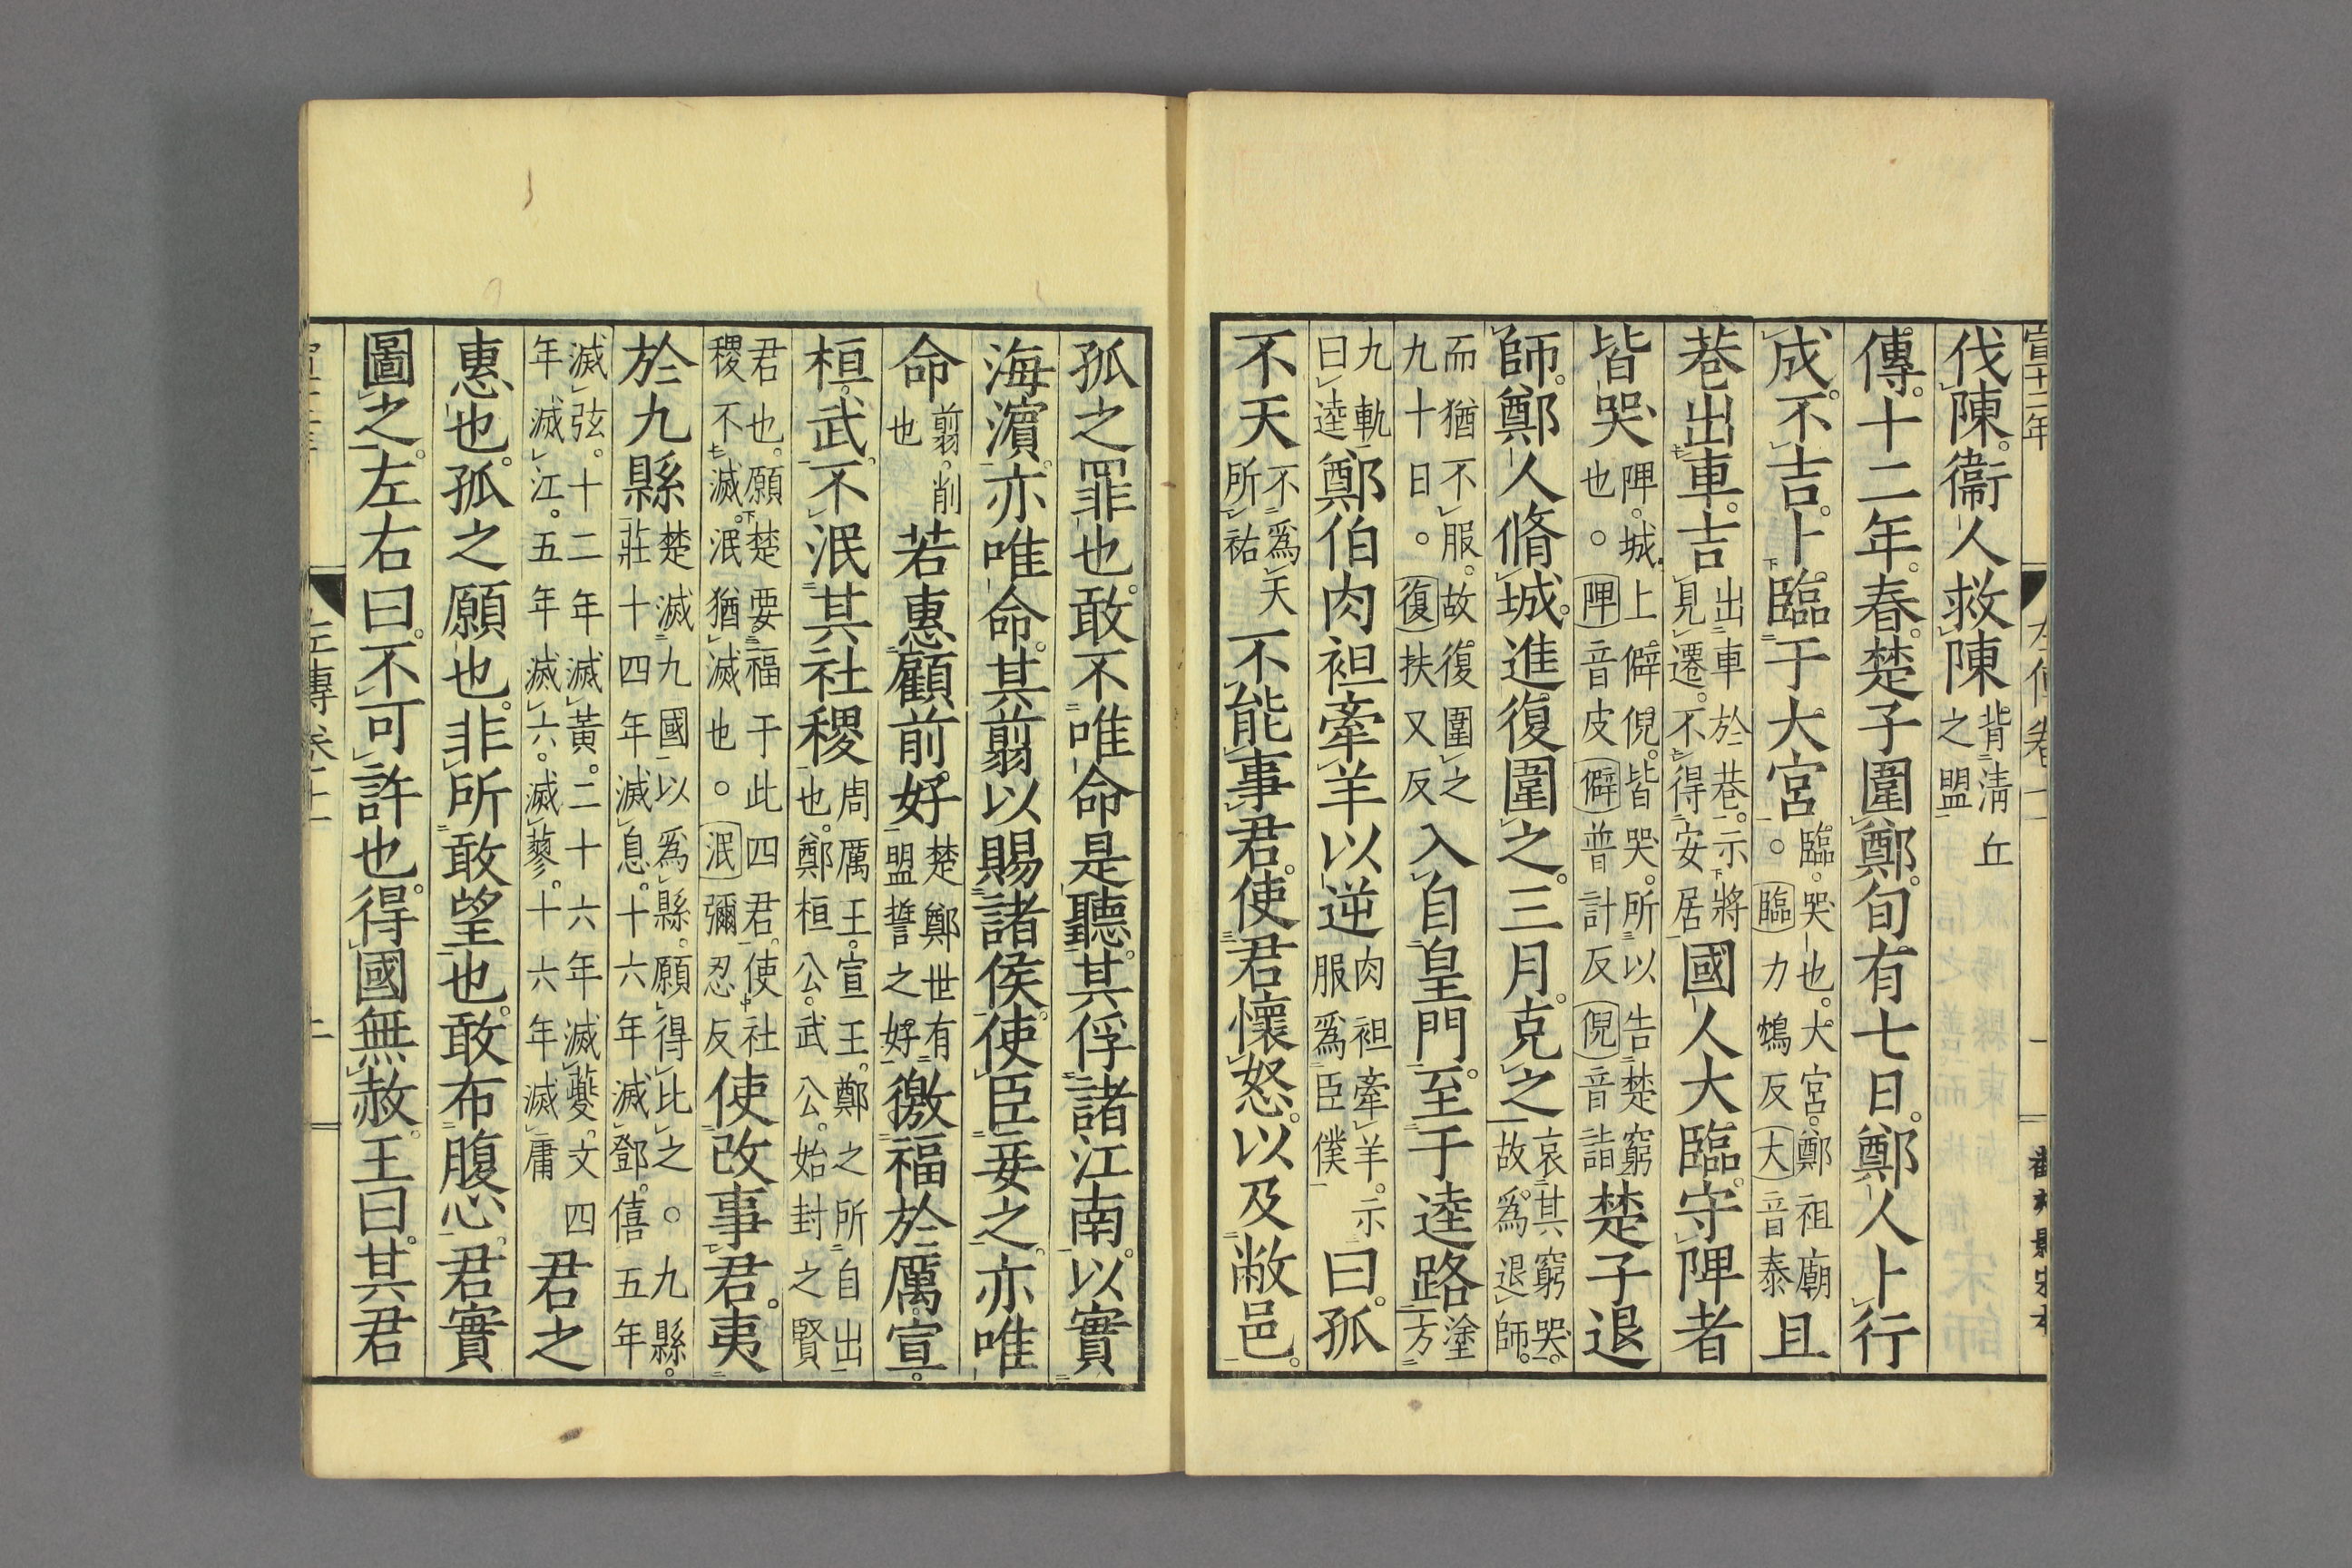 宣十二年
伐陳。衞人救陳背清丘之盟
傳。十二年。春。楚子圍鄭。旬有七日。鄭人卜行
成。不吉。卜。臨于大宮臨。哭也。大宮。鄭祖廟。臨力鴆反大音泰且
巷出車。吉出車於巷。示將見遷。不得安居國人大臨。守陴者
皆哭陴。城上僻倪。皆哭。所以告楚窮也。陴音皮僻普計反倪音詣楚子退
師。鄭人脩城。進復圍之。三月。克之哀其窮哭。故爲退師。
而猶不服。故復圍之九十日。復扶又反入自皇門。至于逵路塗方
九軌曰逵鄭伯肉袒牽羊以逆肉袒牽羊。示服爲臣僕曰。孤
不天不爲天所祐不能事君。使君懷怒。以及敝邑。
孤之罪也。敢不唯命是聽。其俘諸江南。以實
海濵。亦唯命。其翦以賜諸侯。使臣妾之。亦唯
命翦。削也若惠顧前好楚鄭世有盟誓之好徼福於厲宣。
桓。武。不泯其社稷周厲王。宣王。鄭之所自出也。鄭桓公。武公。始封之賢
君也。願楚要福于此四君。使社稷不滅。泯猶滅也。泯彌忍反使改事君。夷
於九縣楚滅九國以爲縣。願得比之。九縣。莊十四年滅息。十六年滅鄧。僖五年
滅弦。十二年滅黃。二十六年滅夔。文四年滅江。五年滅六。滅蓼。十六年滅庸君之
惠也。孤之願也。非所敢望也。敢布腹心。君實
圖之。左右曰。不可許也。得國無赦。王曰。其君
左傳卷十一
二